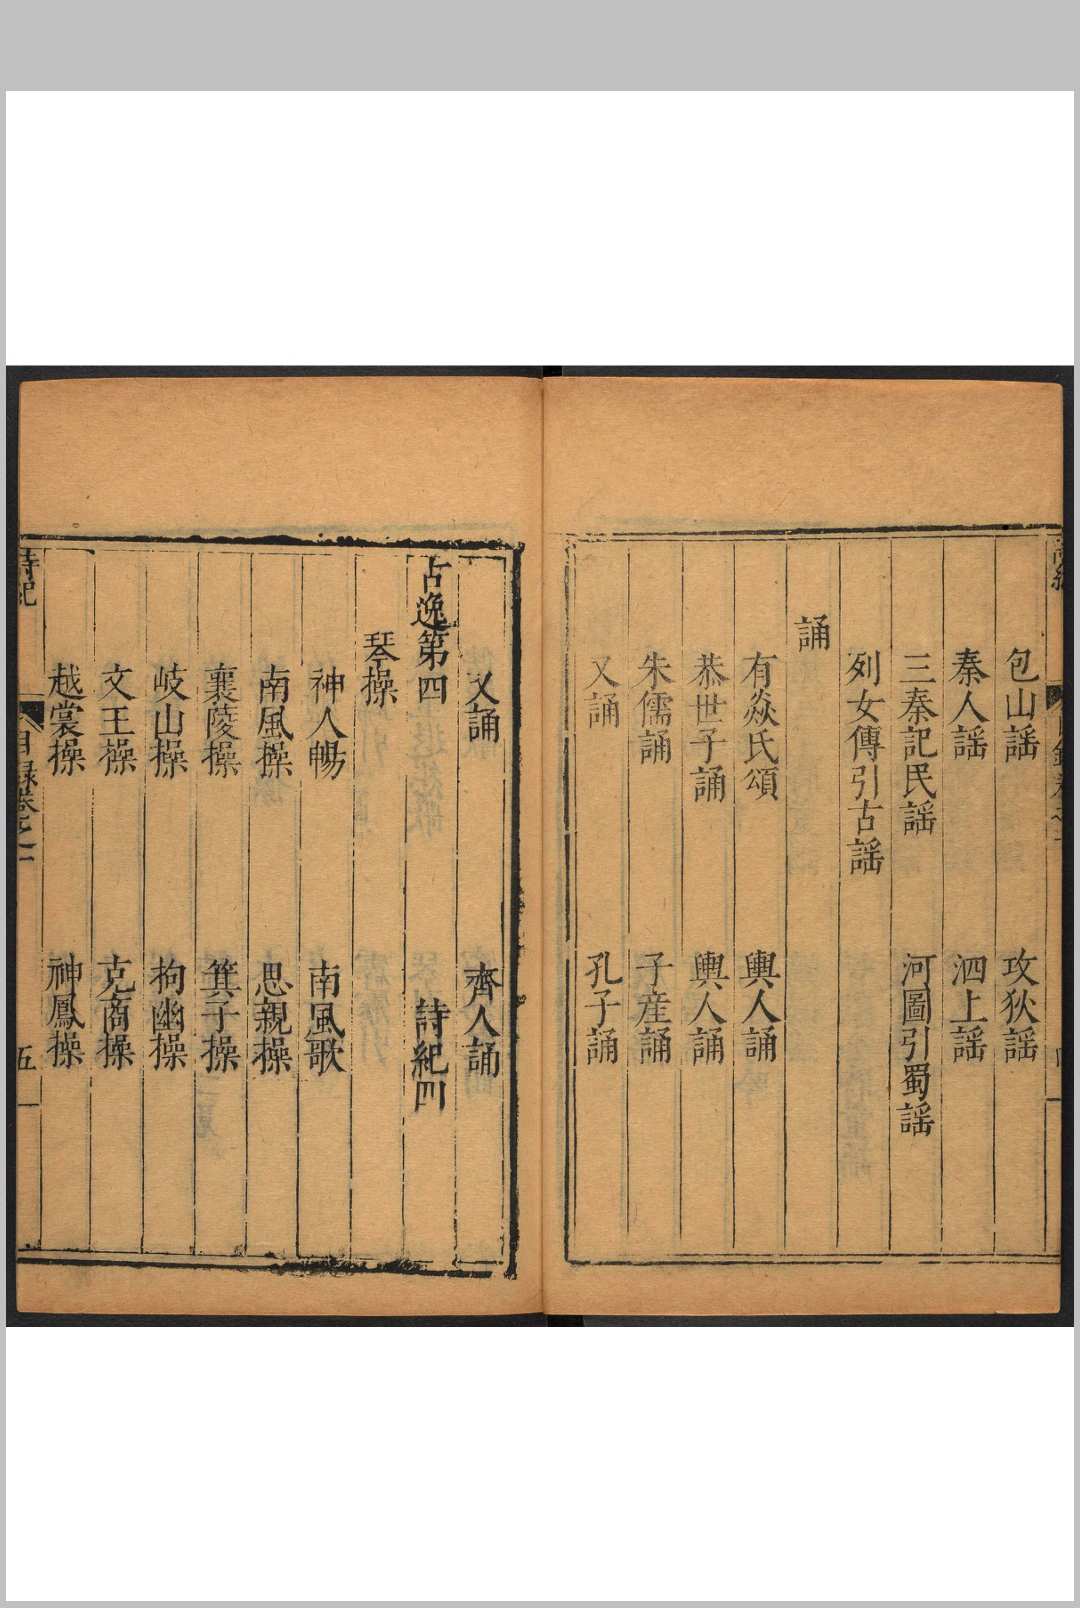 包山謡　攻狄謡
秦人謡　泗上謡
三秦記民謡　河圖引蜀謡
列女傳引古謡
誦
有焱氏頌　輿人誦
恭世子誦　輿人誦
朱儒誦　子産誦
又誦　孔子誦
又誦　齊人誦
古逸第四　詩紀四
琴操
神人暢　南風歌
南風操　思親操
襄陵操　箕子操
岐山操　拘幽操
文王操　克商操
越裳操　神鳳操
詩紀　目録卷之一　五